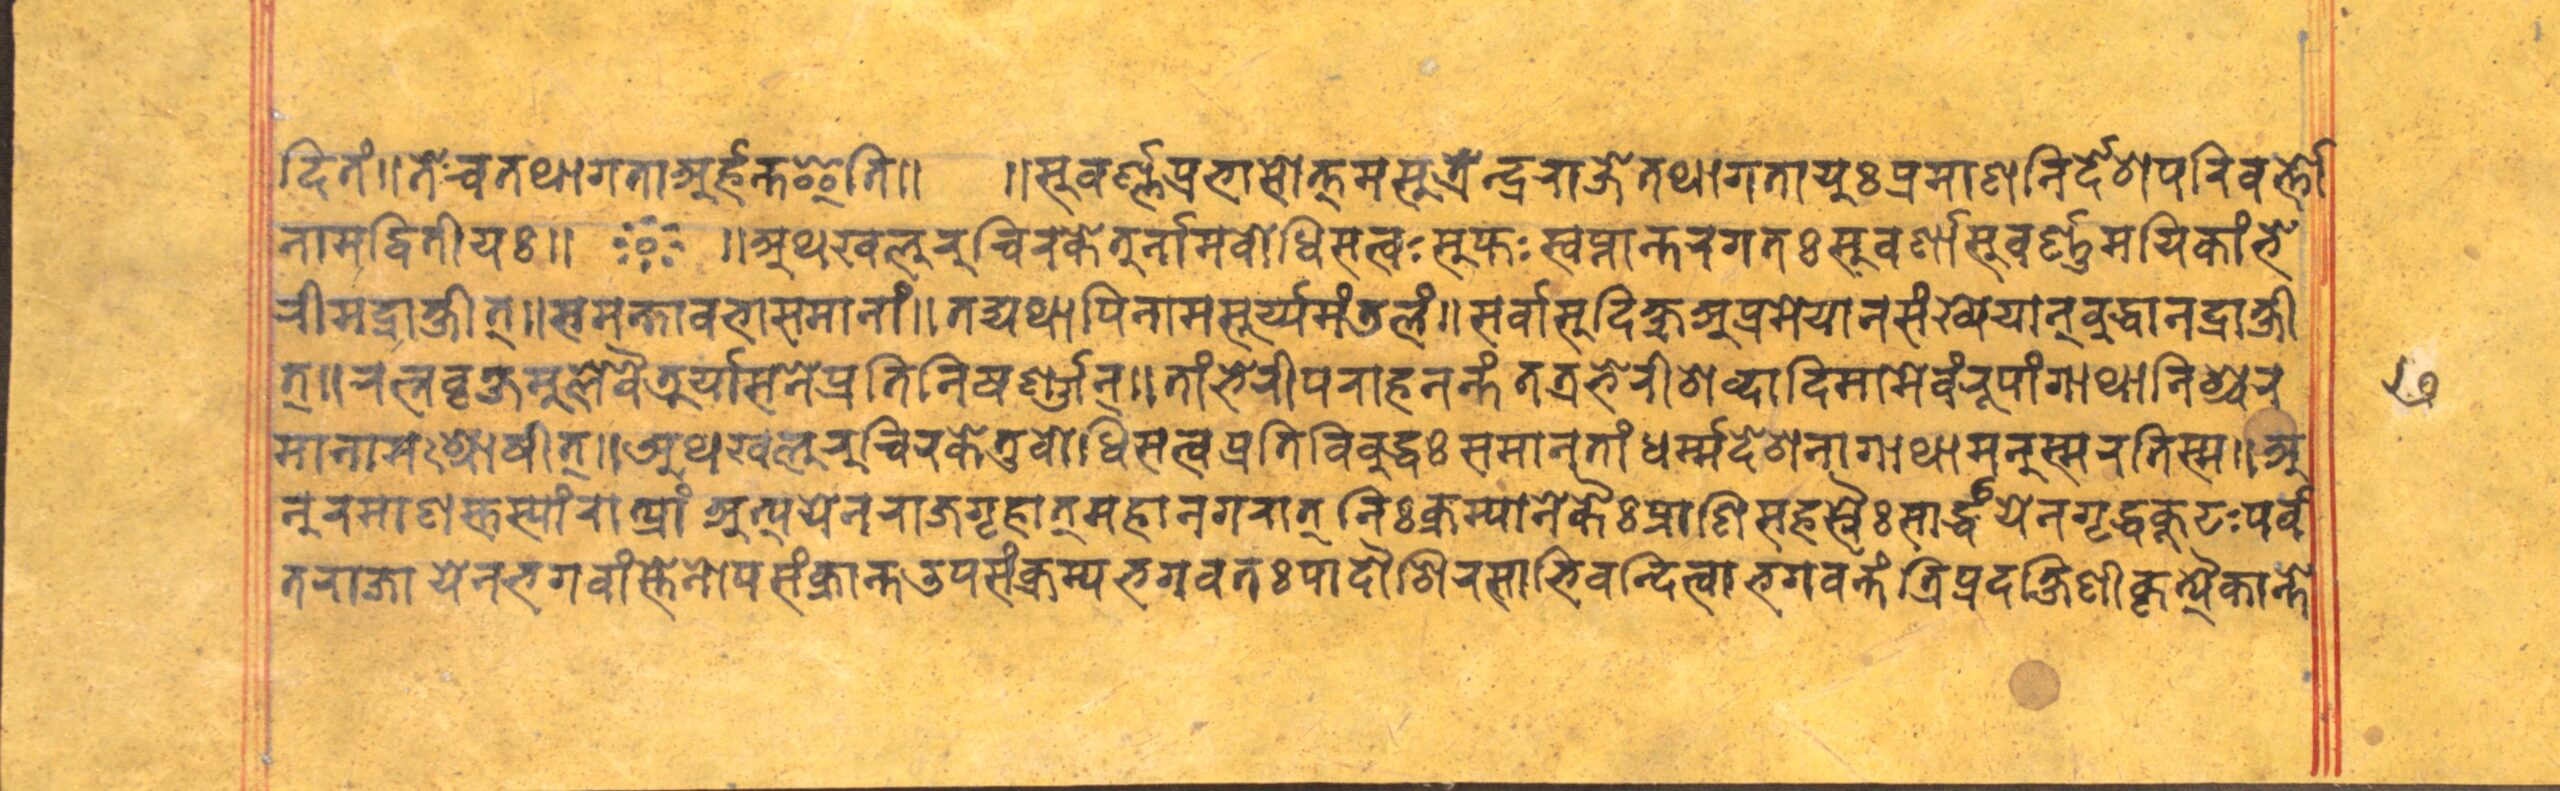 दितं॥तेचतथागताअर्हन्तइति॥ ॥सुवर्ण्णप्रभासोत्तमसूत्रेन्द्रराजेतथागतायुःप्रमाणनिर्देशपरिवर्त्तो
नामद्वितीयः॥ ॥अथखलुरुचिरकेतुर्नामबोधिसत्वःसुप्तःस्वप्नान्तरगतःसुवर्णासुवर्ण्णमयिकांभे
रीमद्राक्षीत्॥समन्तावभासमानां॥तद्यथापिनामसूर्य्यमंडलं॥सर्वासुदिक्षुअप्रमेयानसंख्येयान्बुद्धानद्राक्षी
त्॥रत्नवृक्षमूलेवैडुर्यासनेप्रतिनिषर्ण्णान्॥तांभेरीपराहनन्तं तत्रभेरीशब्दादिमामेवंरूपांगाथानिश्चर
मानामश्रोषीत्॥अथखलुरुचिरकेतुबोधिसत्वप्रतिविबुद्धःसमानतांधर्म्मदेशनागाथामनुस्मरतिस्म॥अ
नुरमाणस्तस्यांरात्र्यां अत्ययेनराजगृहात्महानगरात् निःक्रम्यानेकैःप्राणिसहस्रैःसार्द्धंयेनगृद्धकूटःपर्व
तराजा येनभगवांस्तेनोपसंक्रान्तउपसंक्रम्यभगवतःपादौशिरसाभिवन्दित्वाभगवन्तंत्रिप्रदक्षिणीकृत्यैकान्ते
७